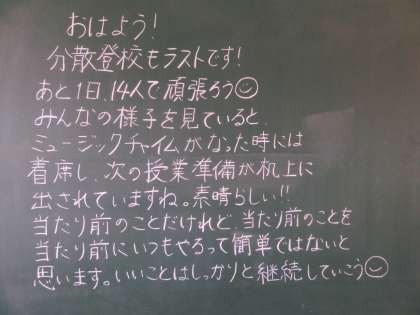 おはよう！
分散登校もラストです！
あと1日、14人で頑張ろう☺
みんなの様子を見ていると、
ミュージックチャイムがなった時には
着席し、次の授業準備が机上に
出されていますね。素晴らしい!!
当たり前のことだけれど、当たり前のことを
当たり前にいつもやろって簡単ではないと
思います。いいことはしっかりと継続していこう☺